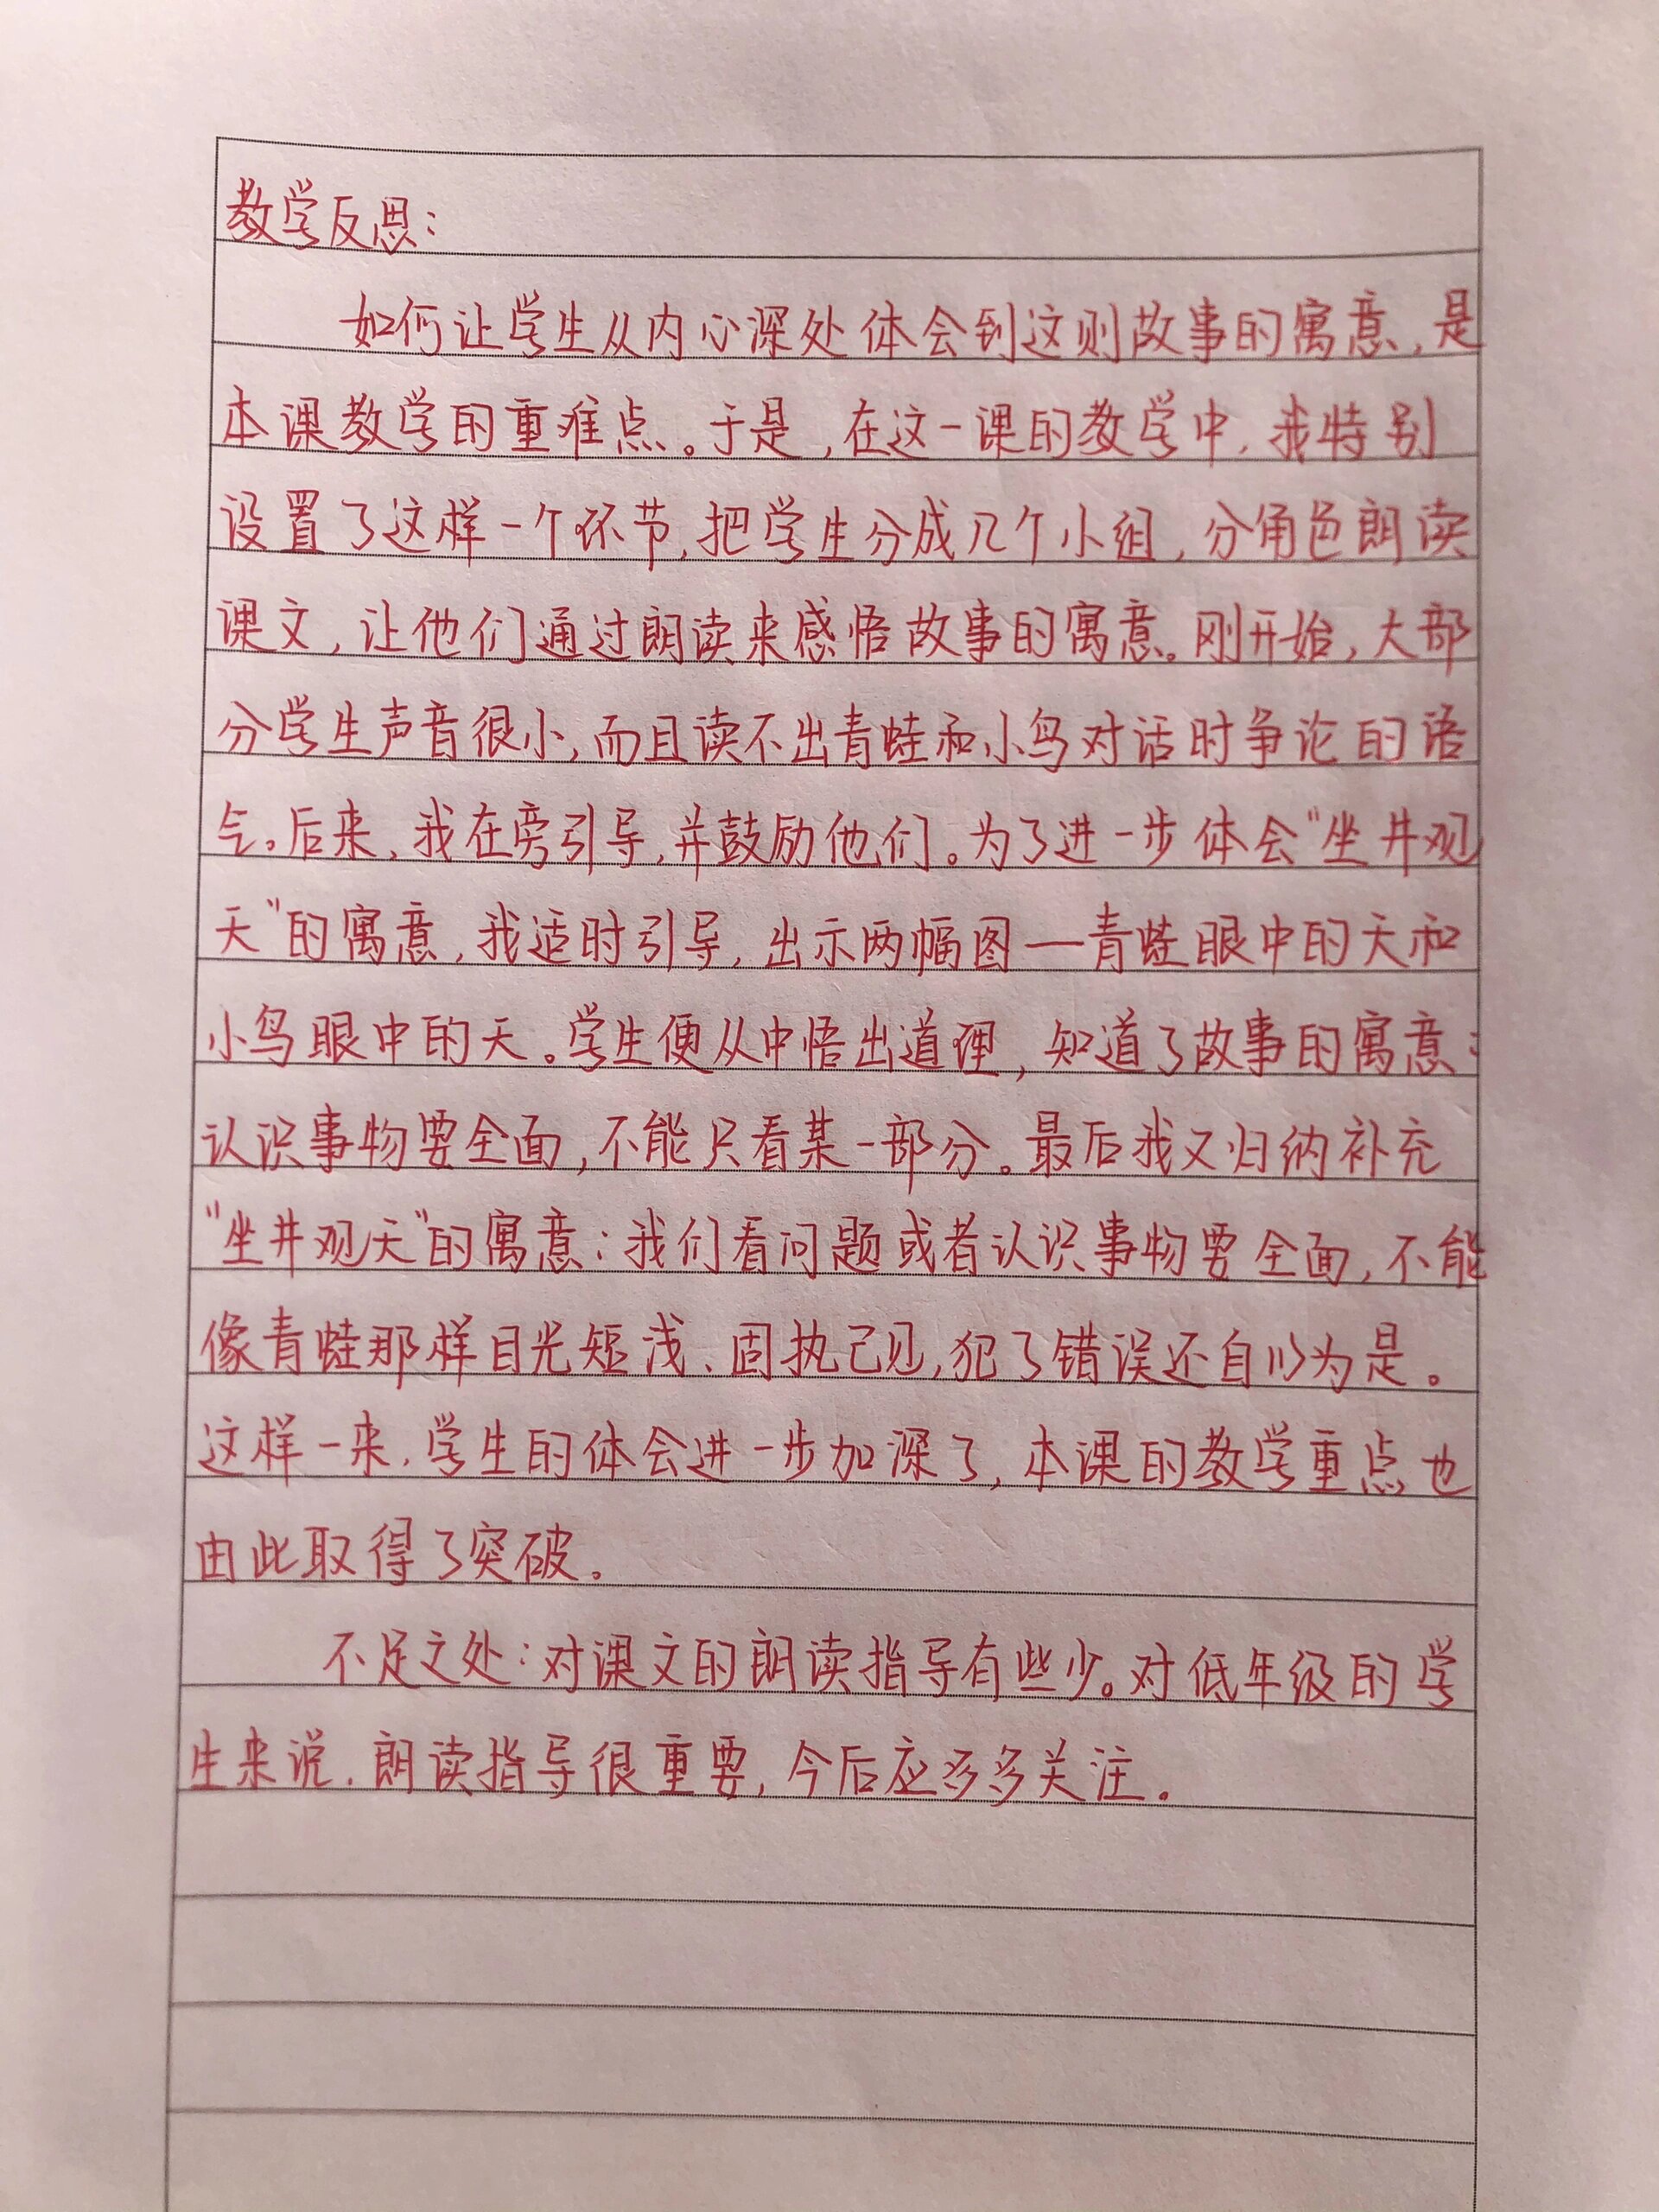 教学反思：
如何让学生从内心深处体会到这则故事的寓意，是
本课教学的重难点。于是，在这一课的教学中，我特别
设置了这样一个环节，把学生分成几个小组，分角色朗读
课文，让他们通过朗读来感悟故事的寓意。刚开始，大部
分学生声音很小，而且读不出青蛙和小鸟对话时争论的语
气。后来，我在旁引导，并鼓励他们。为了进一步体会“坐井观
天”的寓意，我适时引导，出示两幅图—青蛙眼中的天和
小鸟眼中的天。学生便从中悟出道理，知道了故事的寓意：
认识事物要全面，不能只看某一部分。最后我又归纳补充
“坐井观天”的寓意：我们看问题或者认识事物要全面，不能
像青蛙那样目光短浅、固执己见，犯了错误还自以为是。
这样一来，学生的体会进一步加深了，本课的教学重点也
由此取得了突破。
不足之处：对课文的朗读指导有些少。对低年级的学
生来说，朗读指导很重要，今后应多多关注。